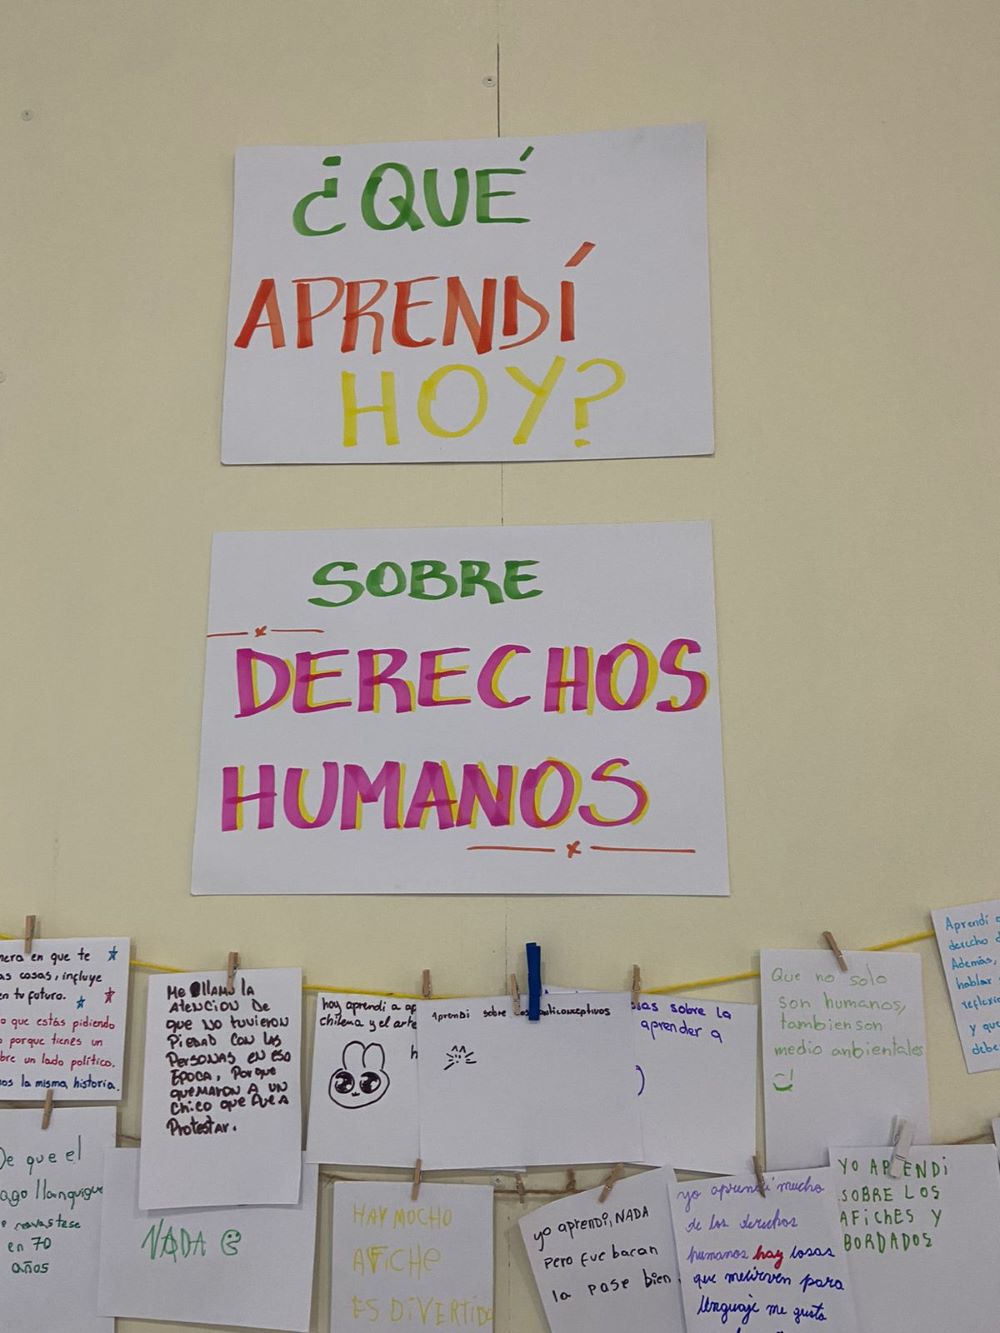 ¿QUÉ
APRENDÍ
HOY?
SOBRE
DERECHOS
HUMANOS
en que te
cosas, influye
en tu futuro.
que estás pidiendo
porque tienes un
un lado político.
la misma historia.
Me llamo la
atención de
que no tuvieron
Piedad con las
Personas en esa
Epoca, Porque
quemaron a un
chico que fue a
Protestar.
hoy aprendi a
chilena y el arte
Aprendi sobre los anticonceptivos
sobre la
aprender a
Que no solo
son humanos,
tambien son
medio anbientales
Aprendí
derecho
Además,
hablar
y que
De que el
llanquigue
en 70
años
NADA
HAY MOCHO
AFiCHe
ES DiVERTIDO
yo aprendi, NADA
Pero fue bacan
la pase bien
yo aprendi mucho
de los derechos
humanos hay cosas
que me sirven para
lenguaje me gusta
YO APRENDi
SOBRE LOS
AFiCHES Y
BORDADOS